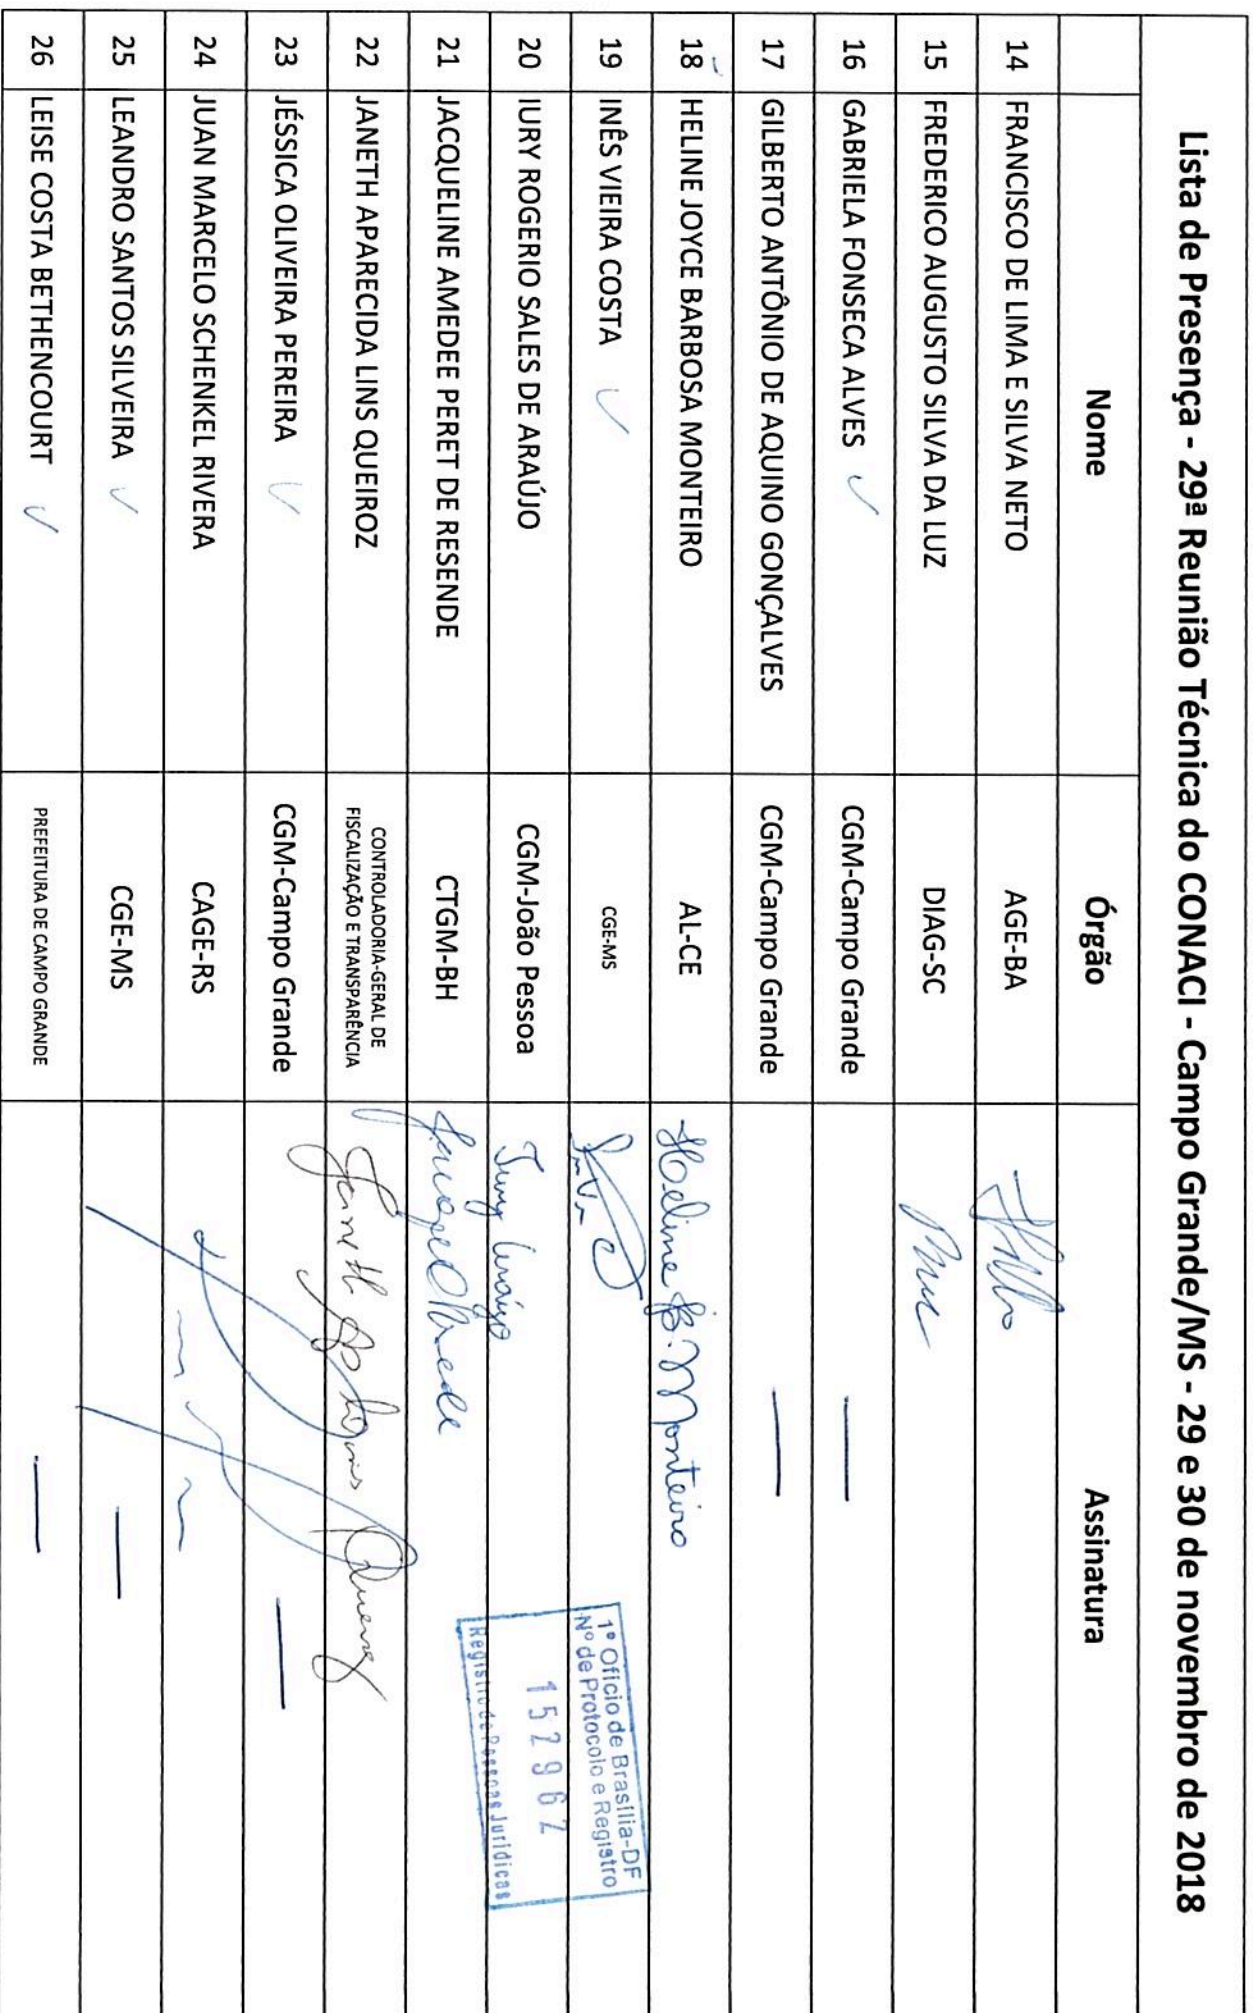 Lista de Presença - 29ª Reunião Técnica do CONACI - Campo Grande/MS - 29 e 30 de novembro de 2018
Nome Órgão Assinatura
14 FRANCISCO DE LIMA E SILVA NETO AGE-BA
15 FREDERICO AUGUSTO SILVA DA LUZ DIAG-SC
16 GABRIELA FONSECA ALVES ✓ CGM-Campo Grande —
17 GILBERTO ANTÔNIO DE AQUINO GONÇALVES CGM-Campo Grande —
18 HELINE JOYCE BARBOSA MONTEIRO AL-CE Heline J. B. Monteiro
19 INÊS VIEIRA COSTA ✓ CGE-MS
20 IURY ROGERIO SALES DE ARAÚJO CGM-João Pessoa Iury Araújo
21 JACQUELINE AMEDEE PERET DE RESENDE CTGM-BH
22 JANETH APARECIDA LINS QUEIROZ CONTROLADORIA-GERAL DE
FISCALIZAÇÃO E TRANSPARÊNCIA Janeth Ap Lins Queiroz
23 JÉSSICA OLIVEIRA PEREIRA ✓ CGM-Campo Grande —
24 JUAN MARCELO SCHENKEL RIVERA CAGE-RS
25 LEANDRO SANTOS SILVEIRA ✓ CGE-MS —
26 LEISE COSTA BETHENCOURT ✓ PREFEITURA DE CAMPO GRANDE —
1º Ofício de Brasília-DF
Nº de Protocolo e Registro
152962
Registro de Pessoas Jurídicas